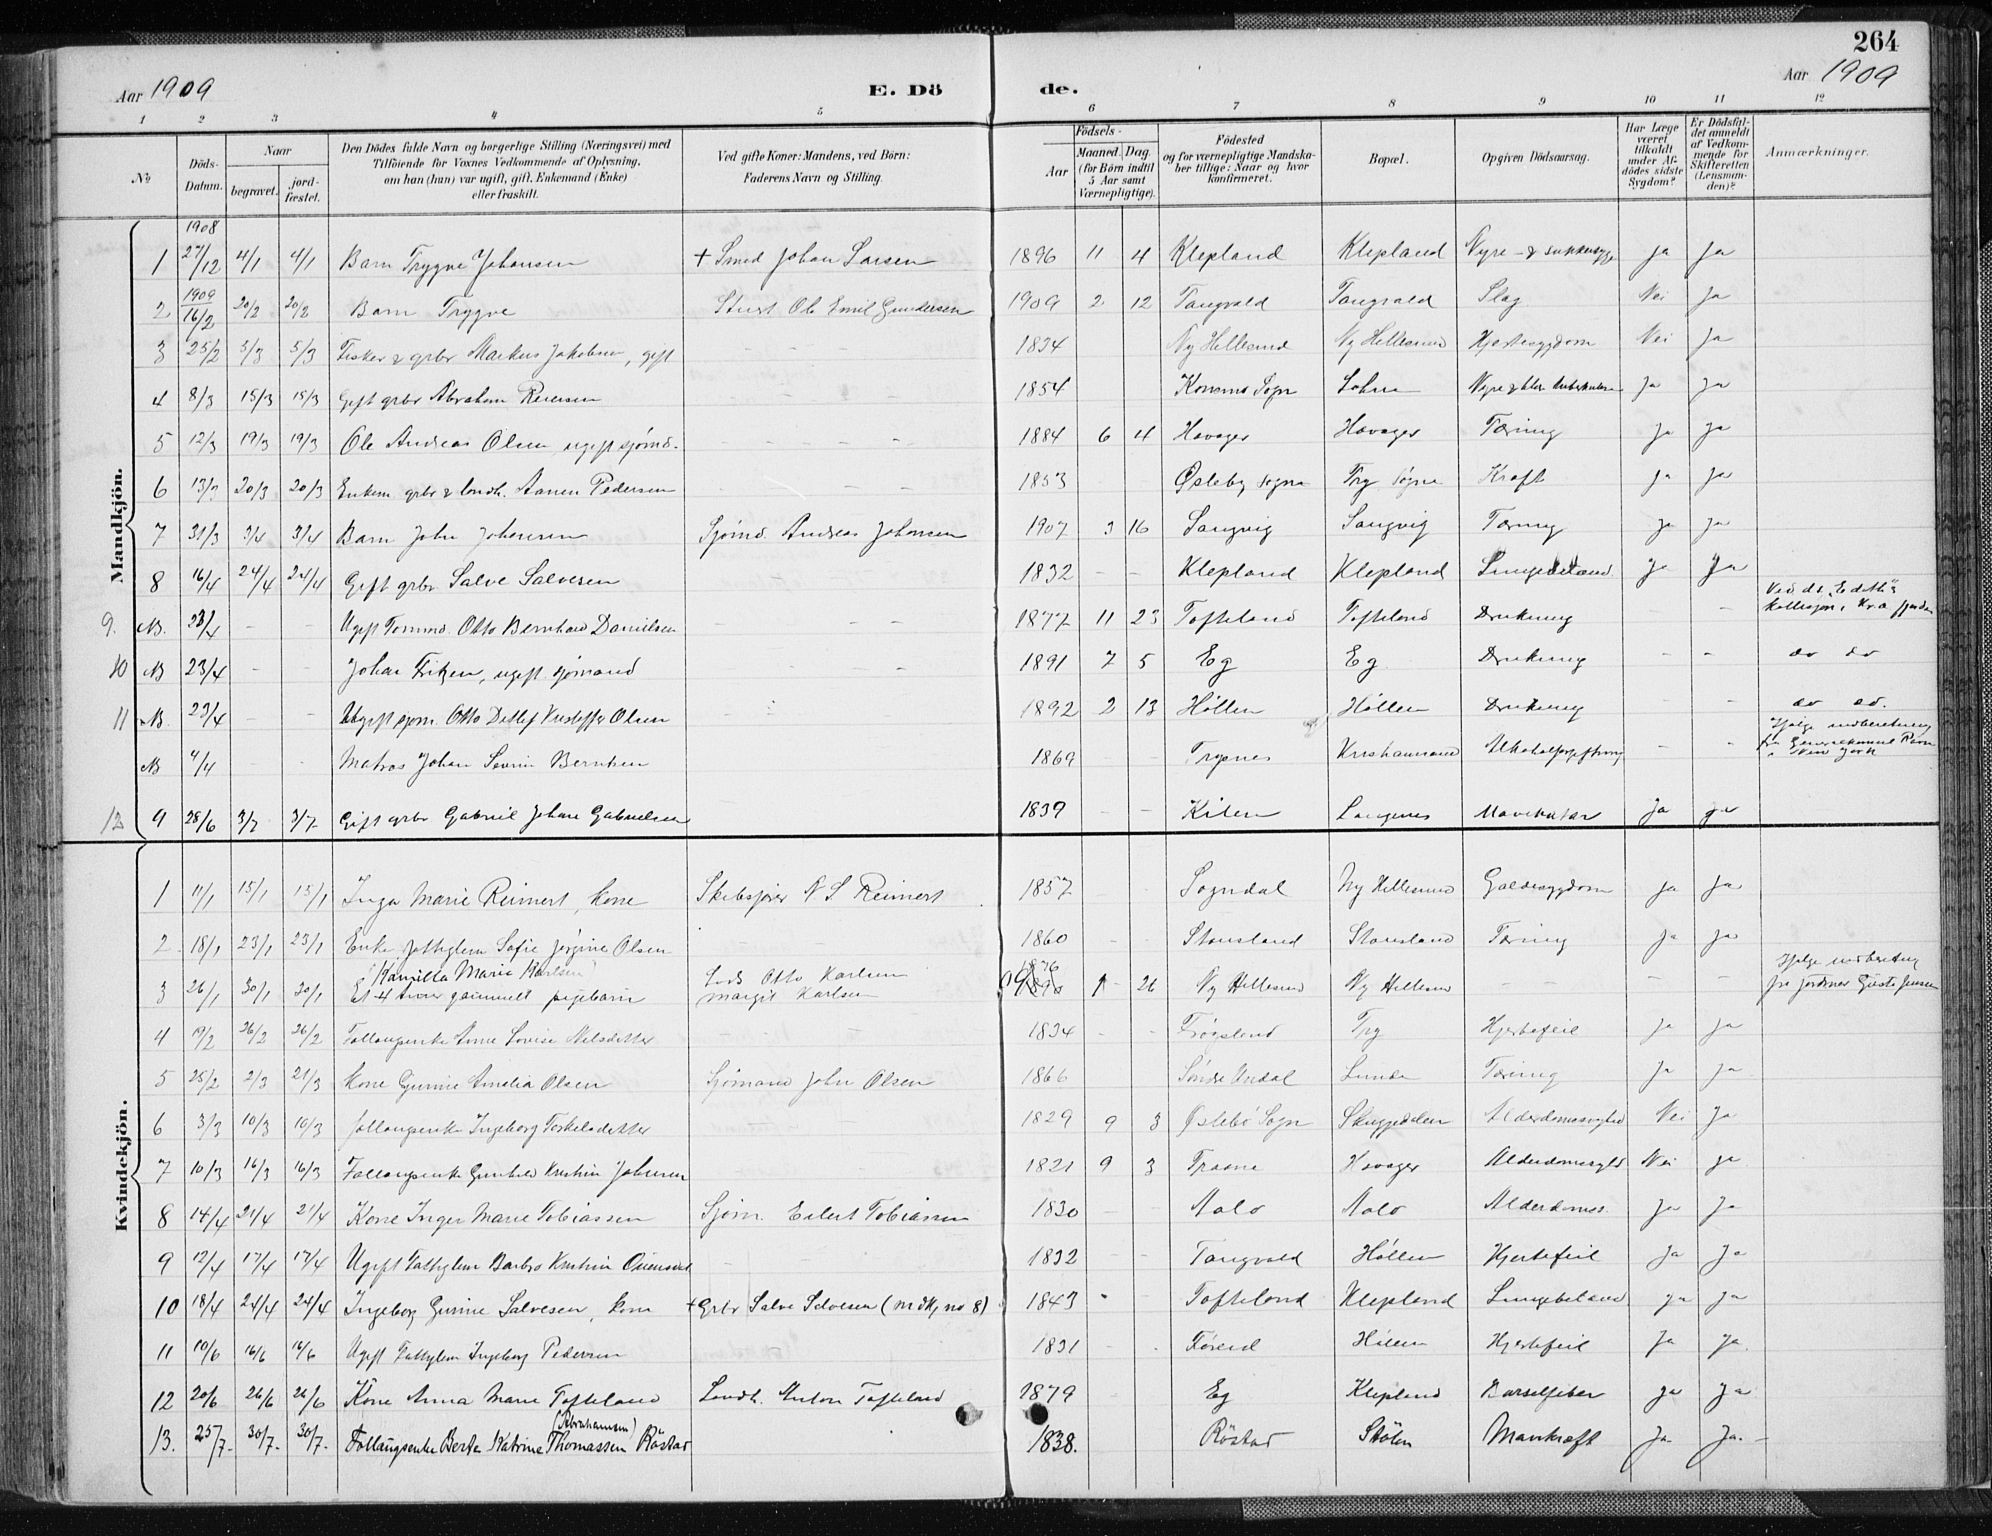 264
Aar 1909
E. Dö
de.
Aar 1909
1 2 3 4 5 6 7 8 9 10 11 12
No
Döds-
Datum.
Naar
begravet.
jord-
fæstet.
Den Dödes fulde Navn og borgerlige Stilling (Næringsvei) med
Tilföiende for Voxnes Vedkommende af Oplysning,
om han (hun) var ugift, gift, Enkemand (Enke)
eller fraskilt.
Ved gifte Koner: Mandens, ved Börn:
Faderens Navn og Stilling.
Födsels-
Aar
Maaned. Dag.
(for Börn indtil
5 Aar samt
Værnepligtige).
Födested
og for værnepligtige Mandska-
ber tillige: Naar og hvor
konfirmeret.
Bopæl.
Opgiven Dödsaarsag.
Har Læge
været
tilkaldt
under Af-
dödes sidste
Sygdom?
Er Dödsfal-
det anmeldt
af Vedkom-
mende for
Skifteretten
(Lensman-
den)?
Anmærkninger.
Mandkjön.
1908
1 27/12 4/1 4/1 Barn Trygve Johansen + Smed Johan Larsen 1896 11 4 Klepland Klepland Nyre - & Ja Ja
1909
2 16/2 20/2 20/2 Barn Trygve Ole Emil Gundersen 1909 2 12 Tangvald Tangvald Slag Nei Ja
3 25/2 5/3 5/3 Fisker & grbr Markus Jakobsen, gift - - - 1834 Ny Hellesund Ny Hellesund Hjertesygdom Nei Ja
4 8/3 15/3 15/3 Gift grbr Abraham Reiersen 1854 Konsmo Sogn Lohne Nyre & Ja Ja
5 12/3 19/3 19/3 Ole Andreas Olsen, ugift sjömd. - - - - 1884 6 4 Havager Havager Tæring Ja Ja
6 13/3 20/3 20/3 Enkem. grbr & landh. Aanen Pedersen - - - 1853 Øslebø sogn Try, Søgne Kræft Ja Ja
7 31/3 3/4 3/4 Barn John Johansen Sjömd. Andreas Johansen 1907 3 16 Langvig Langvig Tæring Ja Ja
8 16/4 24/4 24/4 Gift grbr Salve Salvesen 1832 - - Klepland Klepland Ja Ja
9. NB. 23/4 - - Ugift Otto Bernhard Danielsen - - 1877 11 23 Tofteland Tofteland Drukning - Ved ds „Edith"s
kollision i Kr.a fjorden
10 NB 23/4 - - Johan Fritzen, ugift sjömand - - 1891 7 5 Eg Eg Drukning - - do do
11 NB. 23/4 - - Ugift sjöm. Otto Detlef Kristoffer Olsen 1892 2 13 Höllen Höllen Drukning - do do.
NB 4/4 - Matros Johan Severin Berntsen 1869 Trysnes Kristianssand Alkoholforgiftning - - Ifølge indberetning
fra Generalkonsul Ravn
i New York
12 9 28/6 3/7 3/7 Gift grbr Gabriel Johan Gabrielsen 1839 - - Langenes Mavekatar Ja Ja
Kvindekjön.
1 11/1 15/1 15/1 Inga Marie Reimert, kone Skibsförer N S Reimert 1857 - - Sogndal Ny Hellesund Galdesygdom Ja Ja
2 18/1 23/1 23/1 Enke fattiglem Sofie Jørgine Olsen 1860 - - Stausland Stausland Tæring Ja Ja
3 26/1 30/1 30/1 Kamilla Marie Karlsen
Et 4 timer gammelt pigebarn Lods Otto Karlsen
Margit Karlsen 1 26 Ny Hellesund Ny Hellesund - - - - Ifølge indberetning
fra jordmor Jensen
4 19/2 26/2 26/2 Follaugsenke Anne Lovise Nilsdatter 1834 - - Frøysland Try Hjertefeil Ja Ja
5 25/2 2/3 21/3 Kone Gunnie Amalia Olsen Sjömand John Olsen 1866 Søndre Undal Lunde Tæring Ja Ja
6 3/3 10/3 10/3 Follaugsenke Ingeborg Torkelsdatter 1829 9 3 Øslebö Sogn Skugjedalen Alderdomssvaghed Nei Ja
7 10/3 16/3 16/3 Follaugsenke Gunhild Kristine Johnsen 1821 9 3 Traane Havager Nei Ja
8 14/4 21/4 21/4 Kone Inger Marie Tobiassen Sjöm. Eilert Tobiassen 1830 - - Aalo Aalo Alderdoms. Ja Ja
9 12/4 17/4 17/4 Ugift Fattiglem Barbro Kristine - 1832 Tangvald Höllen Hjertefeil Ja Ja
10 18/4 24/4 24/4 Ingeborg Gurine Salvesen, kone + Grbr Salve Salvesen (mdkj no 8) 1843 Tofteland Klepland Ja Ja
11 10/6 16/6 16/6 Ugift Fattiglem Ingeborg Pedersen 1831 - Höllen Hjertefeil Ja Ja
12 20/6 26/6 26/6 Kone Anna Marie Tofteland Landh. Anton Tofteland 1879 - Eg Klepland Barselfeber Ja Ja
13. 25/7. 30/7. 30/7. Follaugsenke Berte Katrine Thomassen (Abrahamsen) Röstad 1838. Röstad Stölen Mavekræft Ja Ja.